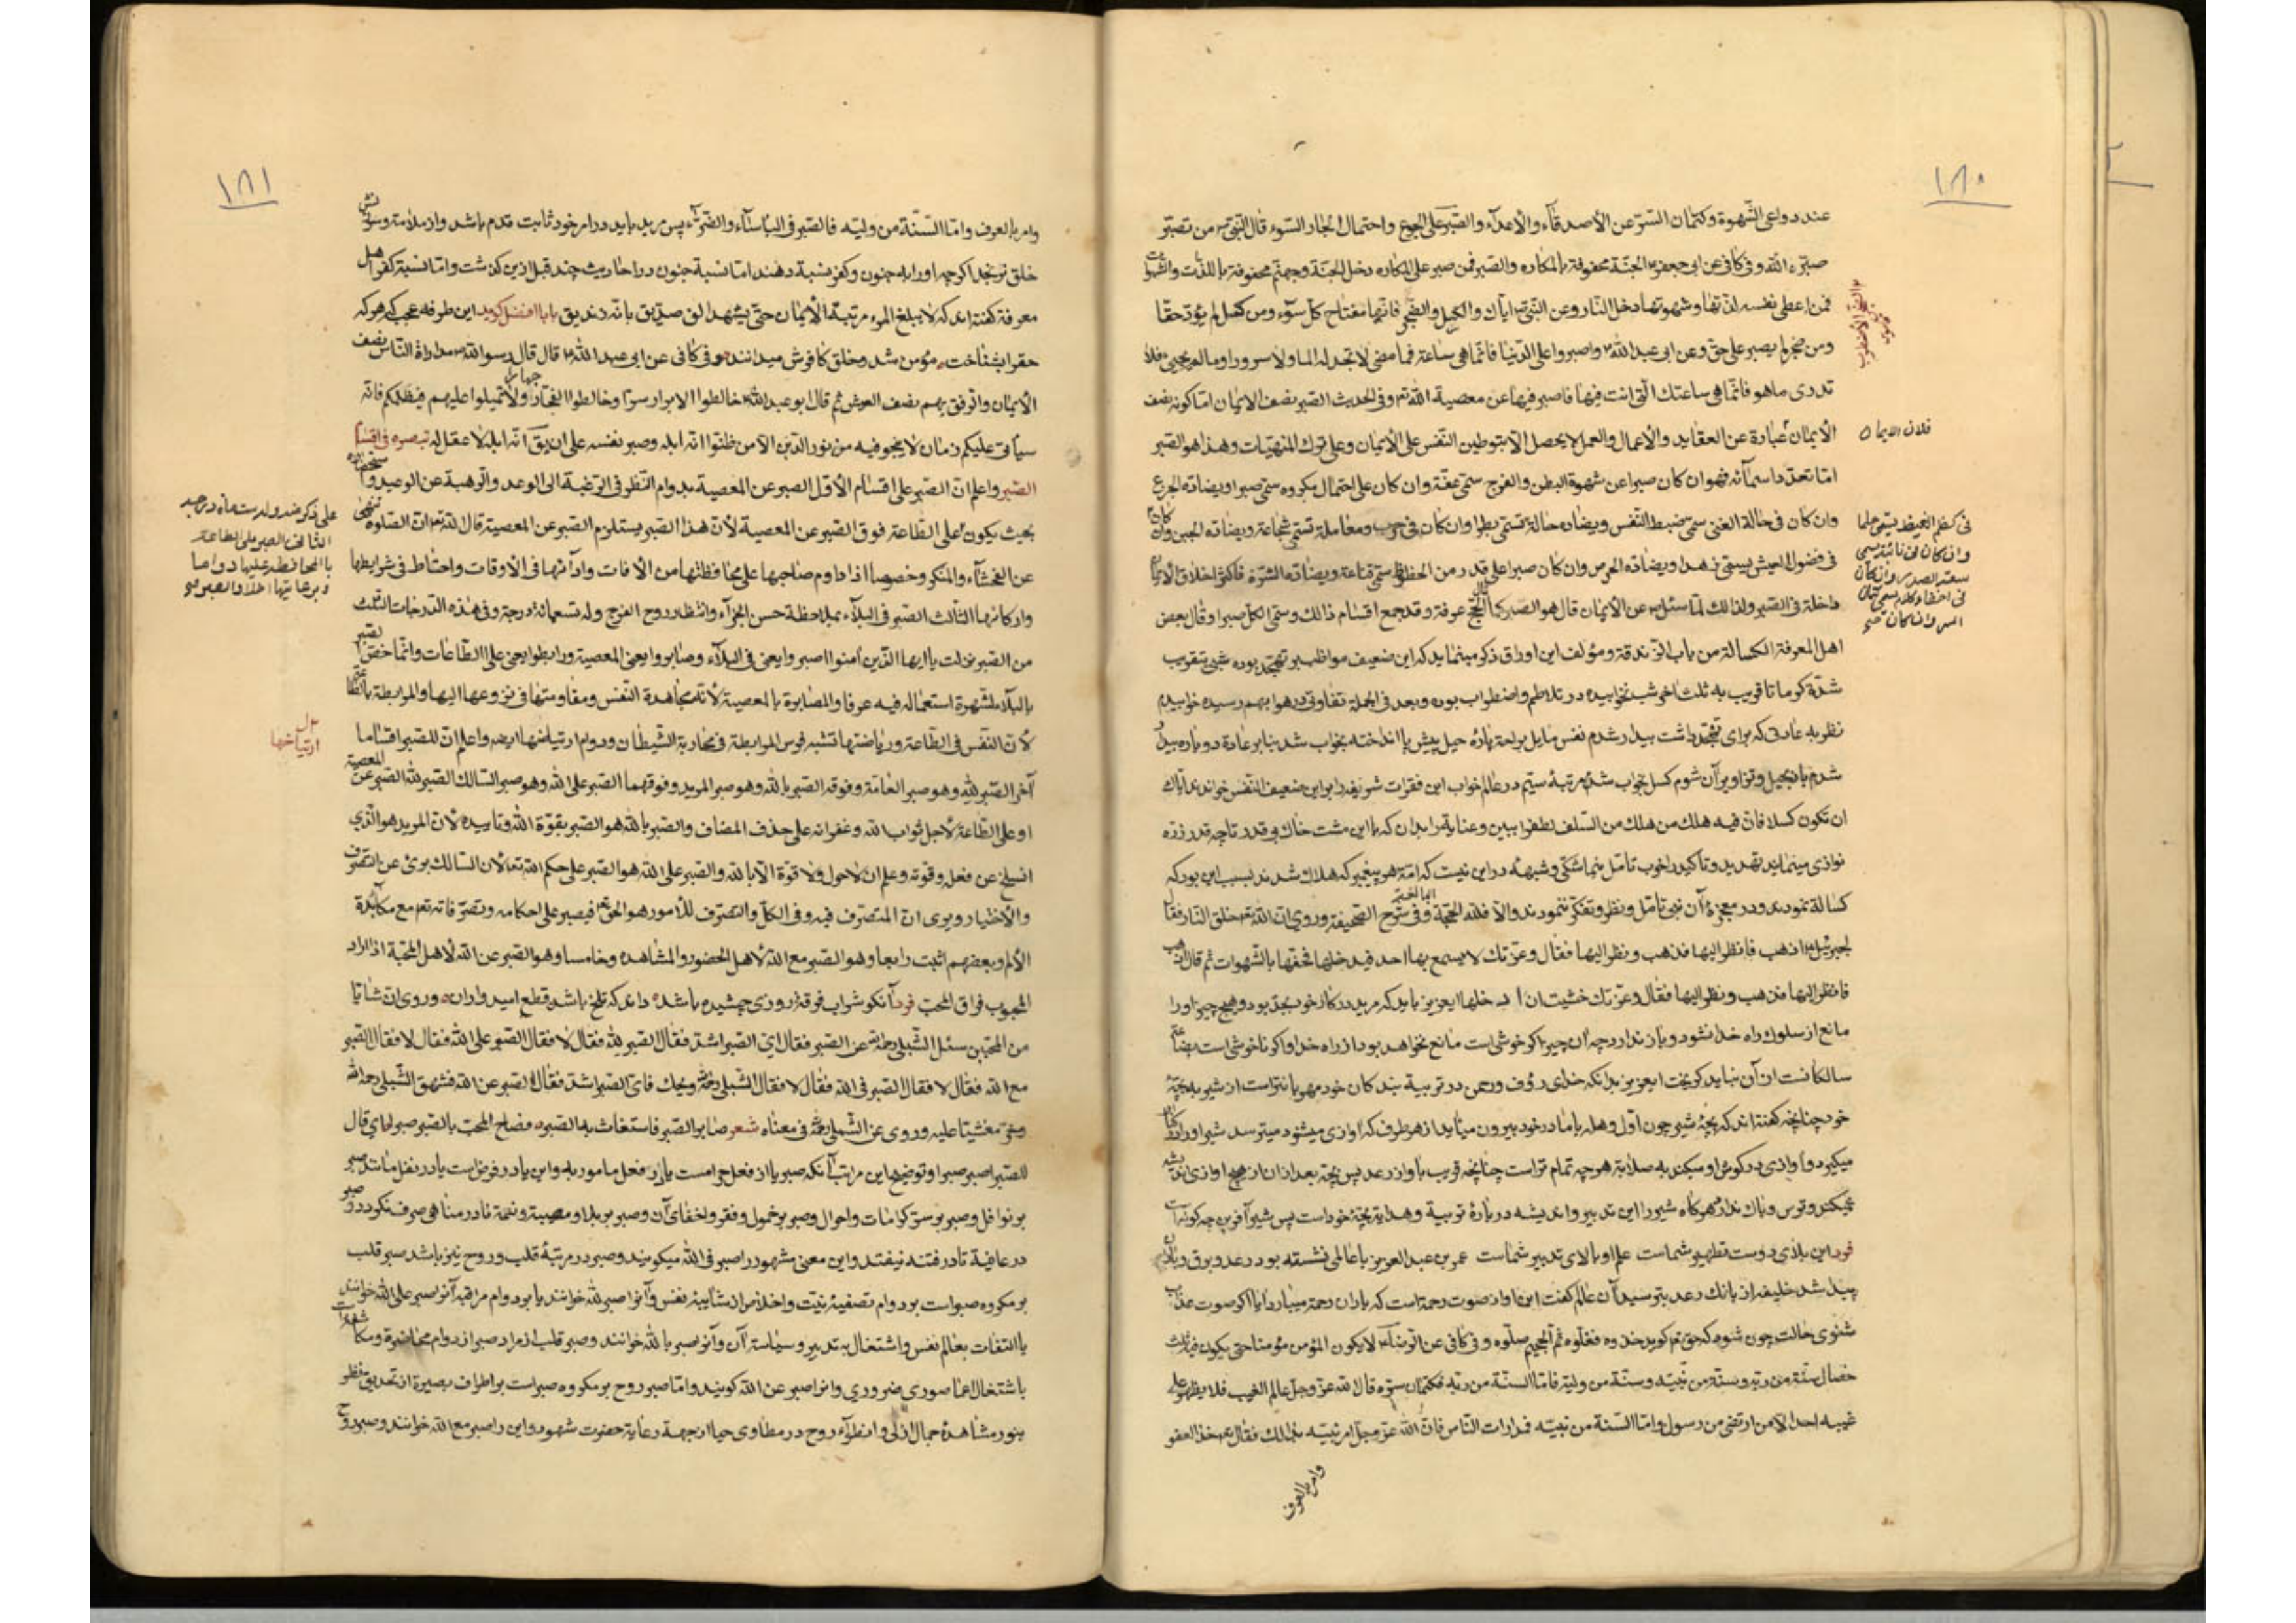 ١٨٠
عند دواعی الشّهوة وکتمان السّرّ عن الأصدقآء والأعدآء والصّبر علی الجوع واحتمال الجار السّوء قال النّبیّ ص من تصبّر
صبّره اللّه وفی کافی عن ابی جعفر ع الجنّة محفوفة بالمکاره والصّبر فمن صبر علی المکاره دخل الجنّة وجهنّم محفوفة باللّذّات والشّهوات
فمن اعطی نفسه لذّتها وشهوتها دخل النّار وعن النّبیّ ص ایّاک والکسل والضّجر فانّها مفتاح کلّ سوٓء ومن کسل لم یؤدّ حقّا
ومن ضجر لم یصبر علی حقّ وعن ابی عبد اللّه ع واصبروا علی الدّنیا فانّما هی ساعة فما مضی لا تجد له الما ولا سرورا وما لم یجیئ فلا
تدری ما هو فانّما هی ساعتک الّتی انت فیها فاصبر فیها عن معصیة اللّه تع وفی الحدیث الصّبر نصف الایمان امّا کونه نصف
الأیمان عبارة عن العقاید والأعمال والعمل لا یحصل الّا بتوطین النّفس علی الأیمان وعلی ترک المنهیّات وهذا هو الصّبر
فلان الایمان
امّا تعدّد اسمآئه فهو ان کان صبرا عن شهوة البطن والفرج سمّی عفّة وان کان علی احتمال مکروه سمّی صبرا ویضادّه الجزع
وان کان فی حالة الغنی سمّی ضبط النّفس ویضادّه حالة تسمّی بطرا وان کان فی حرب ومعاملة تسمّی شجاعة ویضادّه الجبن وان کان
فی کظم الغیظ یسمّی حلما
وان کان فی نائبة یسمی
سعة الصدر وان کان
فی اخفاء کلام یسمی کتمان
السر وان کان صح
فی فضول العیش یسمّی زهدا ویضادّه الحرص وان کان صبرا علی قدر من الحظوظ سمّی قناعة ویضادّه الشّره فاکثر اخلاق الأیمان
داخلة فی الصّبر ولذالک لمّا سئل ص عن الأیمان قال هو الصبر کما الحجّ عرفة وقد جمع اقسام ذالک وسمّی الکلّ صبرا وقال بعض
اهل المعرفة الکسالة من باب الزّندقة ومؤلف این اوراق ذکر مینماید که این ضعیف مواظب بر تهجّد بوده شبی بتقریب
شدّة کرما تا قریب به ثلث اخر شب نخوابیده در تلاطم واضطراب بوده وبعد فی الجملة تفاوتی در هوا بهم رسیده خوابیدم
نظر به عادتی که برای تهجّد داشت بیدار شدم نفس مایل براحة پارهٔ حیل پیش پا انداخته بخواب شد بنابر عادة دوباره بیدار
شدم بتعجیل وتزاویر آن شوم کسل بخواب شد مرتبهٔ سیّم در عالم خواب این فقرات شریفه را براین ضعیف النّفس خواندند ایّاک
ان تکون کسلا فانّ فیه هلک من هلک من السّلف لطف را ببین وعنایة را بدان که با این مشت خاک بی قدر تا چه قدر ذرّه
نوازی مینمایند تهدید وتأکید را خوب تامّل بنما شکّی وشبههٔ در این نیست که امّة هر پیغمبر که هلاک شدند بسبب این بود که
کسالة نمودند ودر معجزهٔ آن نبی تأمّل ونظر وتفکّر ننمودند والّا فللّه الحجّة البالغة وفی شرح الصّحیفة وروی انّ اللّه تع خلق النّار فقال
لجبرئیل ع اذهب فانظر الیها فذهب ونظر الیها فقال وعزّتک لا یسمع بها احد فیدخلها فحفّها بالشّهوات ثم قال اذهب
فانظر الیها فذهب ونظر الیها فقال وعزّتک خشیت ان لا یدخلها ایعزیز باید که مرید در کار خود بجدّ بود وهیچ چیز او را
مانع از سلوک راه خدا نشود وباز ندارد چه ان چیز اکر خوشی است مانع نخواهد بود از راه خدا واکر ناخوشی است
سالکانست از آن نباید کریخت ایعزیز بدانکه خدای رؤف ورحمن در تربیة بندکان خود مهربانتر است از شیر به بچّهٔ
خود چنانچه کفته‌اند که بچّهٔ شیر چون اوّل وهله با مادر خود بیرون میآید از هر طرف که آوازی میشنود میترسد شیر او را
میکیرد وآوازی در کوش او میکند به صلابة هر چه تمام تر است چنانچه قریب باواز رعد پس بچّه بعد از ان از هیچ اوازی اندیشه
نمیکند وترس وباک ندارد هرکاه شیر را این تدبیر واندیشه در بارهٔ تربیة وهدایة بچّهٔ خود است پس شیر آفرین چه کونه است
فرد این بلای دوست تطهیر شماست علم او بالای تدبیر شماست عمر بن عبد العزیز با عالمی نشسته بود رعد وبرق وباران
پیدا شد خلیفه از بانک رعد بترسید آن عالم کفت این اواز صوت رحمة است که باران رحمة میبارد ایا اکر صوت عذاب
شنوی حالت چون شود که حق تع کوید خذوه فغلّوه ثمّ الجحیم صلّوه وفی کافی عن الرّضا ع لا یکون المؤمن مؤمنا حتّی یکون فیه ثلث
خصال سنّة من ربّه وسنّة من نبیّه وسنّة من ولیّه فامّا السنّة من ربّه فکتمان سرّه قال اللّه عزّ وجلّ عالم الغیب فلا یظهر علی
غیبه احدا الّا من ارتضی من رسول وامّا السّنة من نبیّه فمدارات النّاس فانّ اللّه عزّ وجلّ امر نبیّه بذالک فقال تع خذ العفو
وامر بالعرف
١٨١
وامر بالعرف وامّا السّنّة من ولیّه فالصّبر فی البأسآء والضّرّآء پس مرید باید در امر خود ثابت قدم باشد واز ملامة وسرزنش
خلق نرنجد اکرچه او را به جنون وکفر نسبة دهند امّا نسبة جنون در احادیث چند قبل ازین کذشت وامّا نسبة کفر اهل
معرفة کفته‌اند که لا یبلغ المرء مرتبة الأیمان حتّی یشهد الف صدّیق بانّه زندیق بابا افضل کوید این طرفه عجب که هر که
حق را بشناخت مؤمن شد وخلق کافرش میدانند وفی کافی عن ابی عبد اللّه ع قال قال رسول اللّه ص مداراة النّاس نصف
الأیمان والرّفق بهم نصف العیش ثم قال ابو عبد اللّه ع خالطوا الابرار سرّا وخالطوا الفجّار جهارا ولا تمیلوا علیهم فیظلمکم فانّه
سیأتی علیکم زمان لا ینجو فیه من نور الدّین الّا من ظنّوا انّه ابله وصبر نفسه علی ان یق انّه ابله لا عقل له تبصره فی اقسام
الصّبر واعلم انّ الصّبر علی اقسام الأوّل الصبر عن المعصیة بدوام النّظر فی الرّغبة الی الوعد والرّهبة عن الوعید
علی ذکر
الثانی الصبر علی الطاعة
بالمحافظة علیها دواما
وبرعایتها اخلاصا
بحیث یکون علی الطّاعة فوق الصّبر عن المعصیة لأنّ هذا الصّبر یستلزم الصّبر عن المعصیة قال اللّه تع انّ الصّلوة تنهی
عن الفحشآء والمنکر وخصوصا اذا داوم صاحبها علی محافظتها من الأفات وادآئها فی الأوقات واحتاط فی شرایطها
وارکانها الثّالث الصّبر فی البلآء بملاحظة حسن الجزآء وانتظار روح الفرج وله تسعمائة درجة وفی هذه الدّرجات الثّلث
من الصّبر نزلت یا ایها الّذین آمنوا اصبروا یعنی فی البلآء وصابروا یعنی المعصیة ورابطوا یعنی علی الطّاعات وانّما خصّ الصبر
بالبلآء لشهرة استعماله فیه عرفا والمصابرة بالمعصیة لأنّه مجاهدة النّفس ومقاومتها فی نزوعها الیها والمرابطة بالطّاعة
لأنّ النّفس فی الطّاعة وریاضتها تشبه فرس المرابطة فی محاربة الشّیطان ودوام ارتیاضها ایضا واعلم انّ للصّبر اقساما
ارتیاضها
آخر الصّبر للّه وهو صبر العامّة وفوقه الصّبر باللّه وهو صبر المرید وفوقهما الصّبر علی اللّه وهو صبر السّالک الصّبر للّه الصّبر عن المعصیة
او علی الطّاعة لأجل ثواب اللّه وغفرانه علی حذف المضاف والصّبر باللّه هو الصّبر بقوّة اللّه وتأییده لأنّ المرید هو الّذی
انسلخ عن فعله وقوّته وعلم ان لا حول ولا قوّة الّا باللّه والصّبر علی اللّه هو الصّبر علی حکم اللّه تعالی لأنّ السّالک بریء عن التصرّف
والأختیار ویری انّ المتصرّف فیه وفی الکلّ والتصرّف للأمور هو الحق تع فیصبر علی احکامه وتصرّفاته تع مع مکابدة
الألم وبعضهم اثبت رابعا وهو الصّبر مع اللّه لأهل الحضور والمشاهده وخامسا وهو الصّبر عن اللّه لأهل المحبّة اذا اراد
المحبوب فراق المحبّ فرد آنکو شراب فرقة روزی چشیده باشد داند که تلخ باشد قطع امید واران وروی انّ شابّا
من المحبّین سئل الشّبلی رحمه اللّه عن الصّبر فقال ایّ الصّبر اشدّ فقال الصّبر للّه فقال لا فقال الصّبر علی اللّه فقال لا فقال الصّبر
مع اللّه فقال لا فقال الصّبر فی اللّه فقال لا فقال الشّبلی رحمه اللّه ویحک فایّ الصّبر اشدّ فقال الصّبر عن اللّه فشهق الشّبلی رحمه اللّه
وخرّ مغشیّا علیه وروی عن الشّبلی رحمه اللّه فی معناه شعر صابر الصّبر فاستغاث به الصّبر فصاح المحبّ بالصّبر صبرا ای قال
للصّبر اصبر صبرا وتوضیح این مراتب آنکه صبر یا از فعل حرامست یا در فعل مامور به واین یا در فرض است یا در نفل مانند صبر
بر نوافل وصبر بر ستر کرامات واحوال وصبر بر خمول وفقر واخفای آن وصبر بر بلا ومصیبة ونعمة تا در مناهی صرف نکردد وصبر
در عافیة تا در فتنه نیفتد واین معنی مشهور را صبر فی اللّه میکویند وصبر در مرتبهٔ قلب وروح نیز باشد صبر قلب
بر مکروه صبر است بر دوام تصفیهٔ نیّت واخلاص از شایبهٔ نفس وآنرا صبر للّه خوانند یا بر دوام مراقبه آنرا صبر علی اللّه خوانند
با التفات بعالم نفس واشتغال به تدبیر وسیاسة آن وآنرا صبر باللّه خوانند وصبر قلب از مراد صبر از دوام محاضرة ومکاشفات
باشتغال اعما صوری ضروری وانرا صبر عن اللّه کویند وامّا صبر روح بر مکروه صبر است بر اطراف بصیرة از تحدیق نظر
بنور مشاهدهٔ جمال ازلی وانطوآء روح در مطاوی حیا از جهة رعایة حضرت شهود واین را صبر مع اللّه خوانند وصبر روح